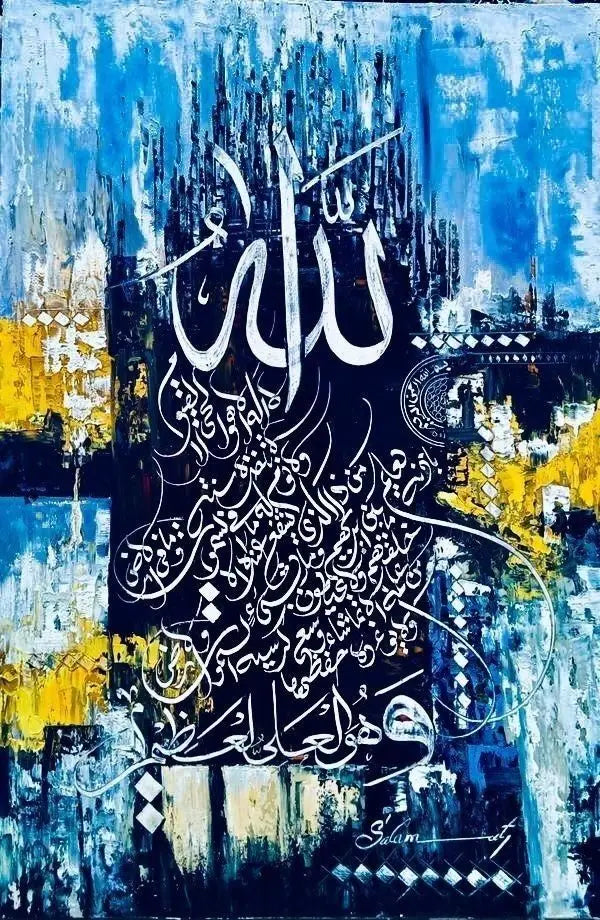 الله
لا اله الا هو الحي القيوم
لا تاخذه سنة ولا نوم له ما في السموت وما في الارض
من ذا الذي يشفع عنده الا باذنه
يعلم ما بين ايديهم وما خلفهم
ولا يحيطون بشيء من علمه الا بما شاء
وسع كرسيه السموت والارض
ولا يؤده حفظهما
وَهُوَ الْعَلِيُّ الْعَظِيم
Salam